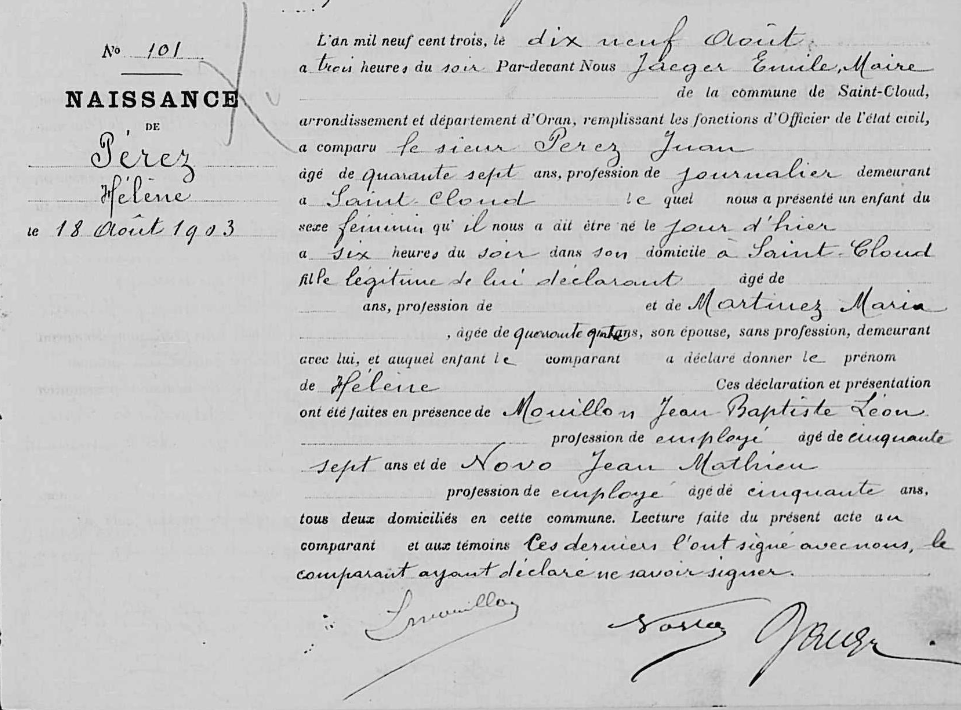 No 101
NAISSANCE
DE
Pérez
Hélène
le 18 Août 1903
L'an mil neuf cent trois, le dix neuf Août
a trois heures du soir Par-devant Nous Jaeger Emile, Maire
de la commune de Saint-Cloud,
arrondissement et département d'Oran, remplissant les fonctions d'Officier de l'état civil,
a comparu le sieur Pérez Juan
âgé de quarante sept ans, profession de journalier demeurant
a Saint-Cloud le quel nous a présenté un enfant du
sexe féminin qu'il nous a dit être né le jour d'hier
a six heures du soir dans son domicile à Saint-Cloud
fille légitime de lui déclarant âgé de
ans, profession de et de Martinez Maria
, âgée de ans, son épouse, sans profession, demeurant
avec lui, et auquel enfant le comparant a déclaré donner le prénom
de Hélène Ces déclaration et présentation
ont été faites en présence de Mouillon Jean Baptiste Léon
profession de employé âgé de cinquante
sept ans et de Novo Jean Mathieu
profession de employé âgé de cinquante ans,
tous deux domiciliés en cette commune. Lecture faite du présent acte au
comparant et aux témoins Ces derniers l'ont signé avec nous, le
comparant ayant déclaré ne savoir signer.